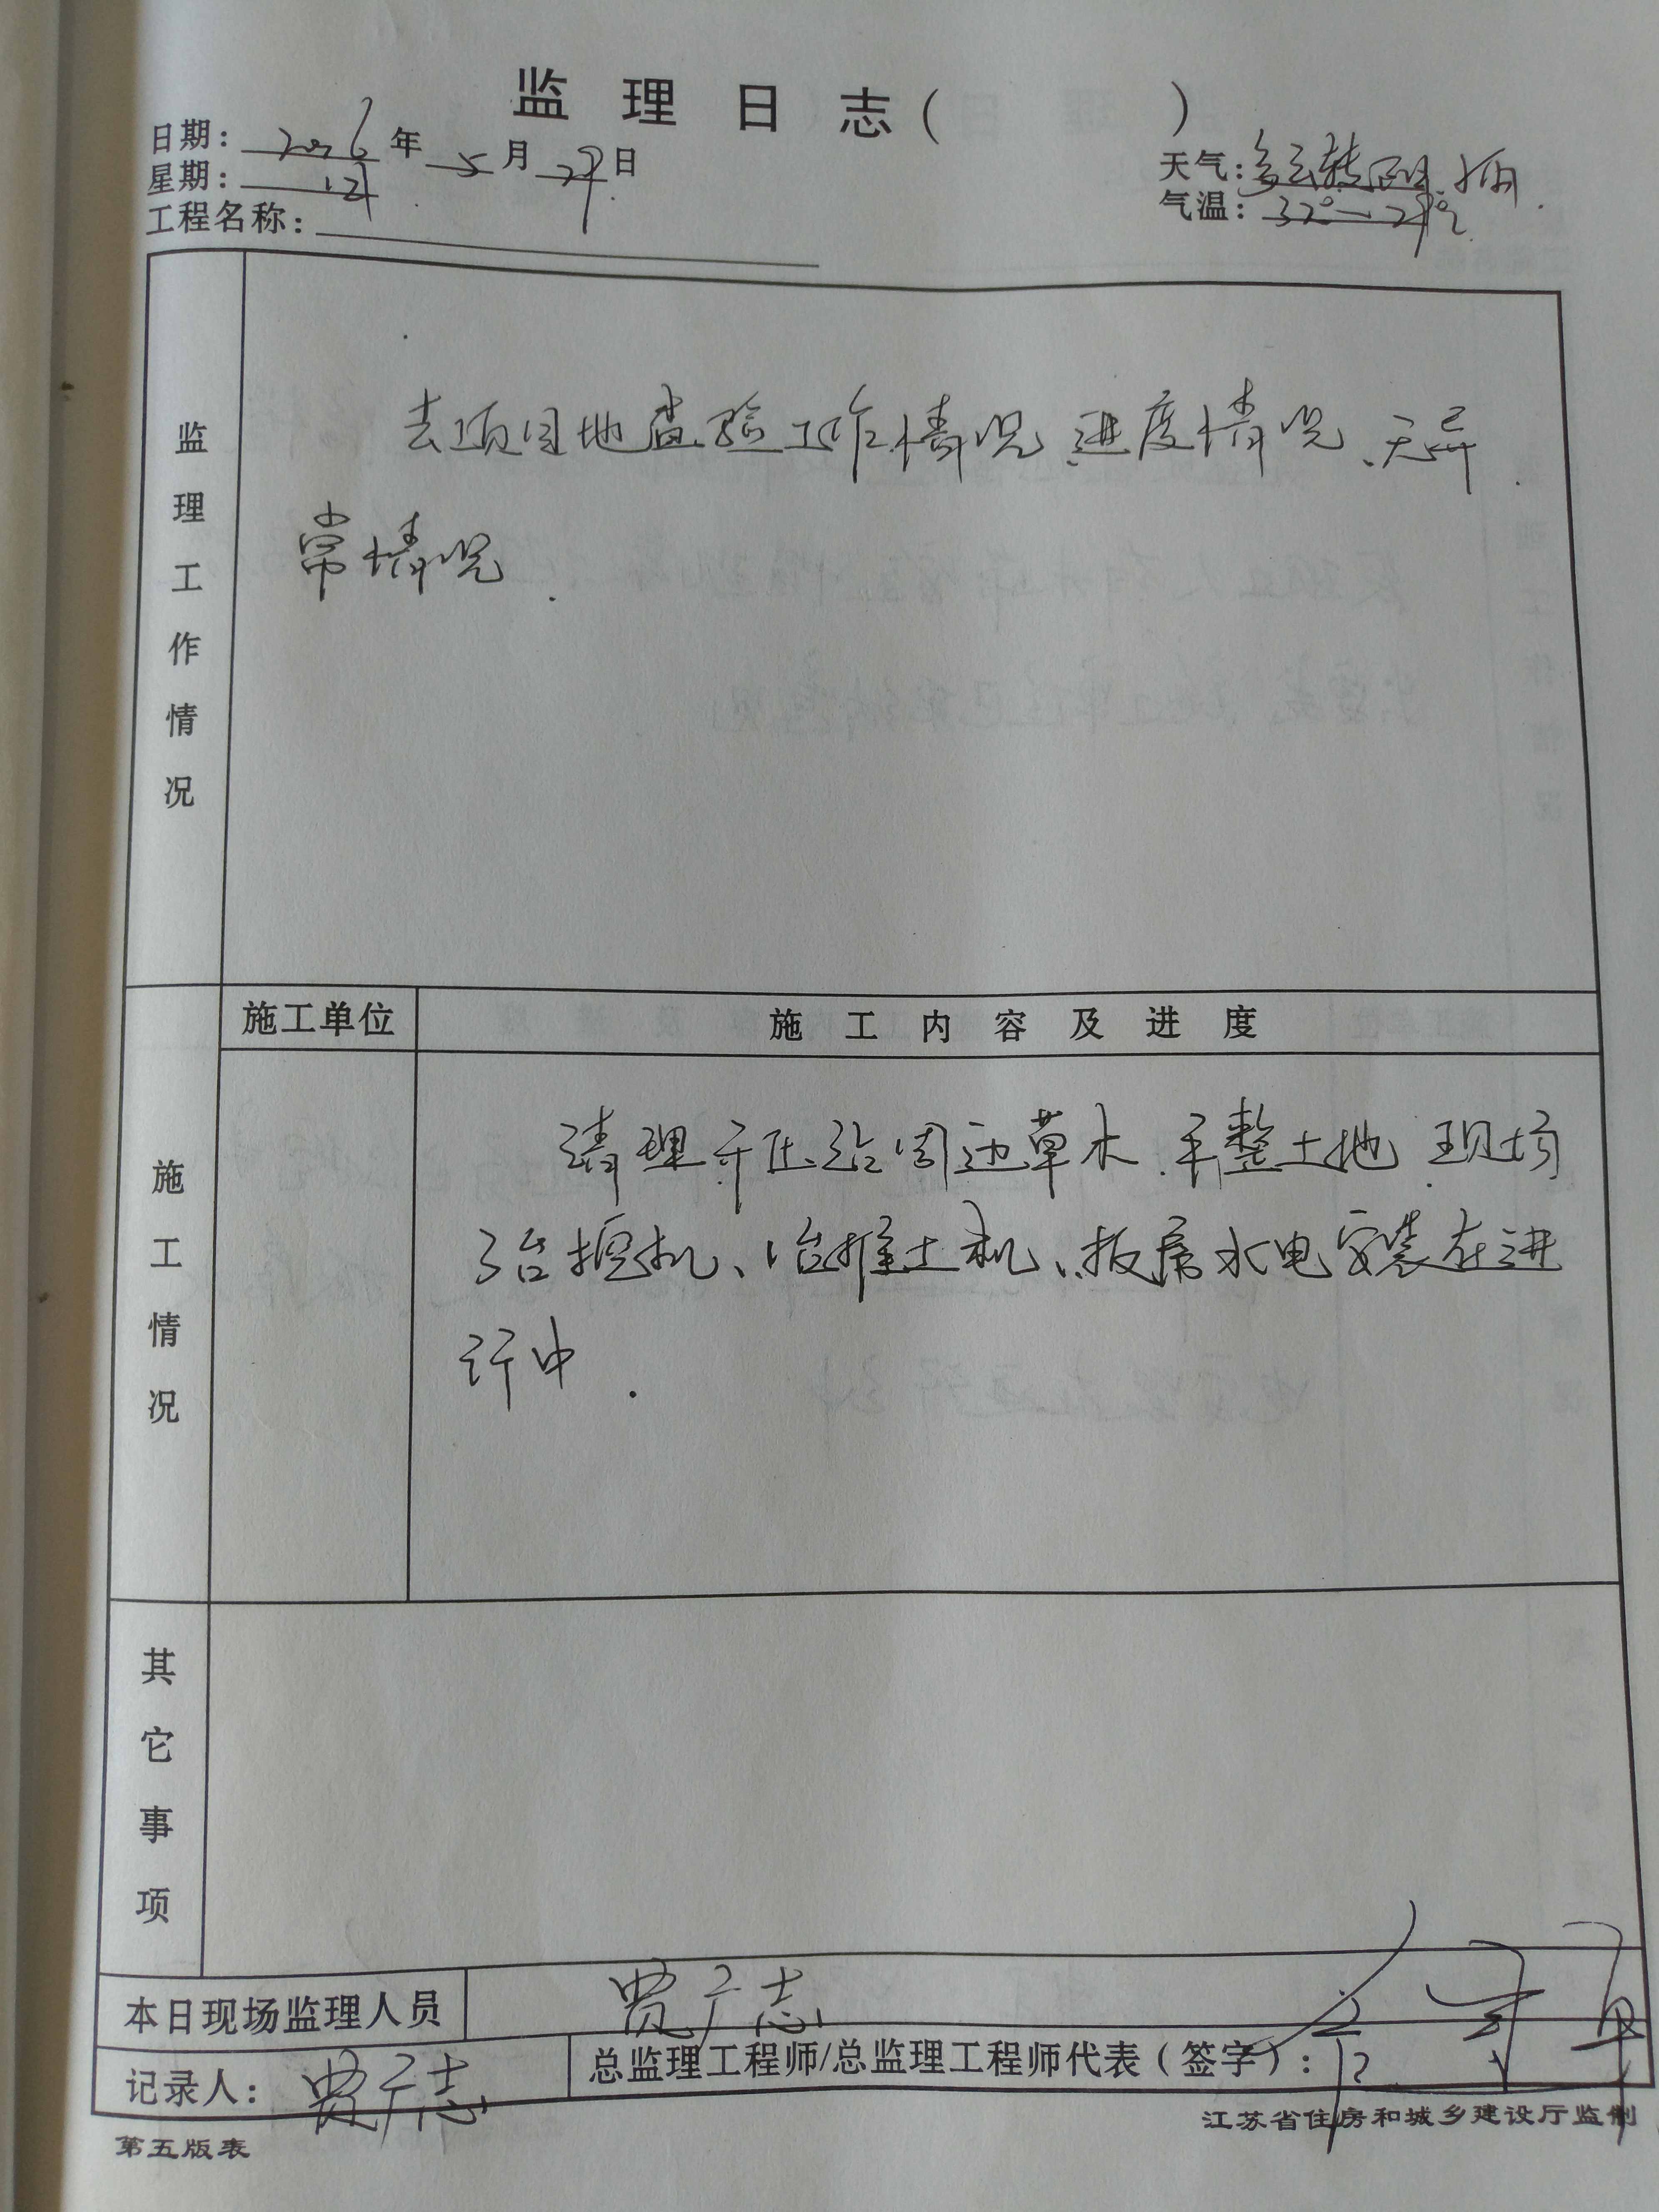 监理日志(　　　)
日期: 2026年 5月 29日
星期:
天气: 多云转
气温: 32°—2
工程名称:
监理工作情况
去项目地查验工作情况、进度情况、无异
常情况.
施工单位
施工内容及进度
施工情况
清理并压 周边草木、平整土地.现场
3台挖机、1台推土机、板房水电安装在进
行中.
其它事项
本日现场监理人员 贾广志
记录人: 贾广志
总监理工程师/总监理工程师代表(签字):
江苏省住房和城乡建设厅监制
第五版表